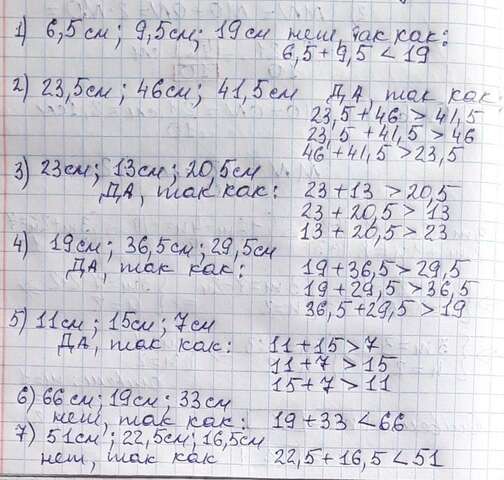 1) 6,5см; 9,5см; 19см нет, так как:
6,5+9,5 < 19
2) 23,5см; 46см; 41,5см ДА, так как:
23,5+46 > 41,5
23,5 +41,5 > 46
46+41,5 >23,5
3) 23см; 13см; 20,5см
ДА, так как: 23+13 >20,5
23+20,5 > 13
13+20,5 > 23
4) 19см; 36,5см; 29,5см
ДА, так как: 19+36,5>29,5
19+29,5 > 36,5
36,5+29,5 > 19
5) 11см; 15см; 7см
ДА, так как: 11+15>7
11+7 > 15
15+7 > 11
6) 66см; 19см; 33см
нет, так как: 19+33 <66
7) 51см; 22,5см; 16,5см
нет, так как 22,5+16,5 <51